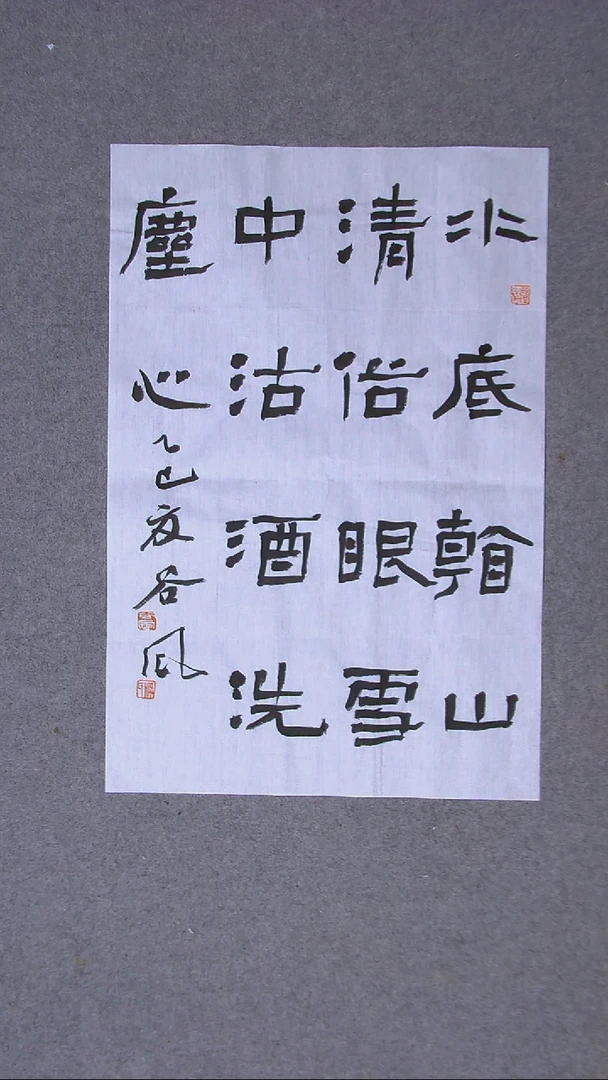 水底看山
清俗眼雪
中沽酒洗
塵心
乙巳夏谷风